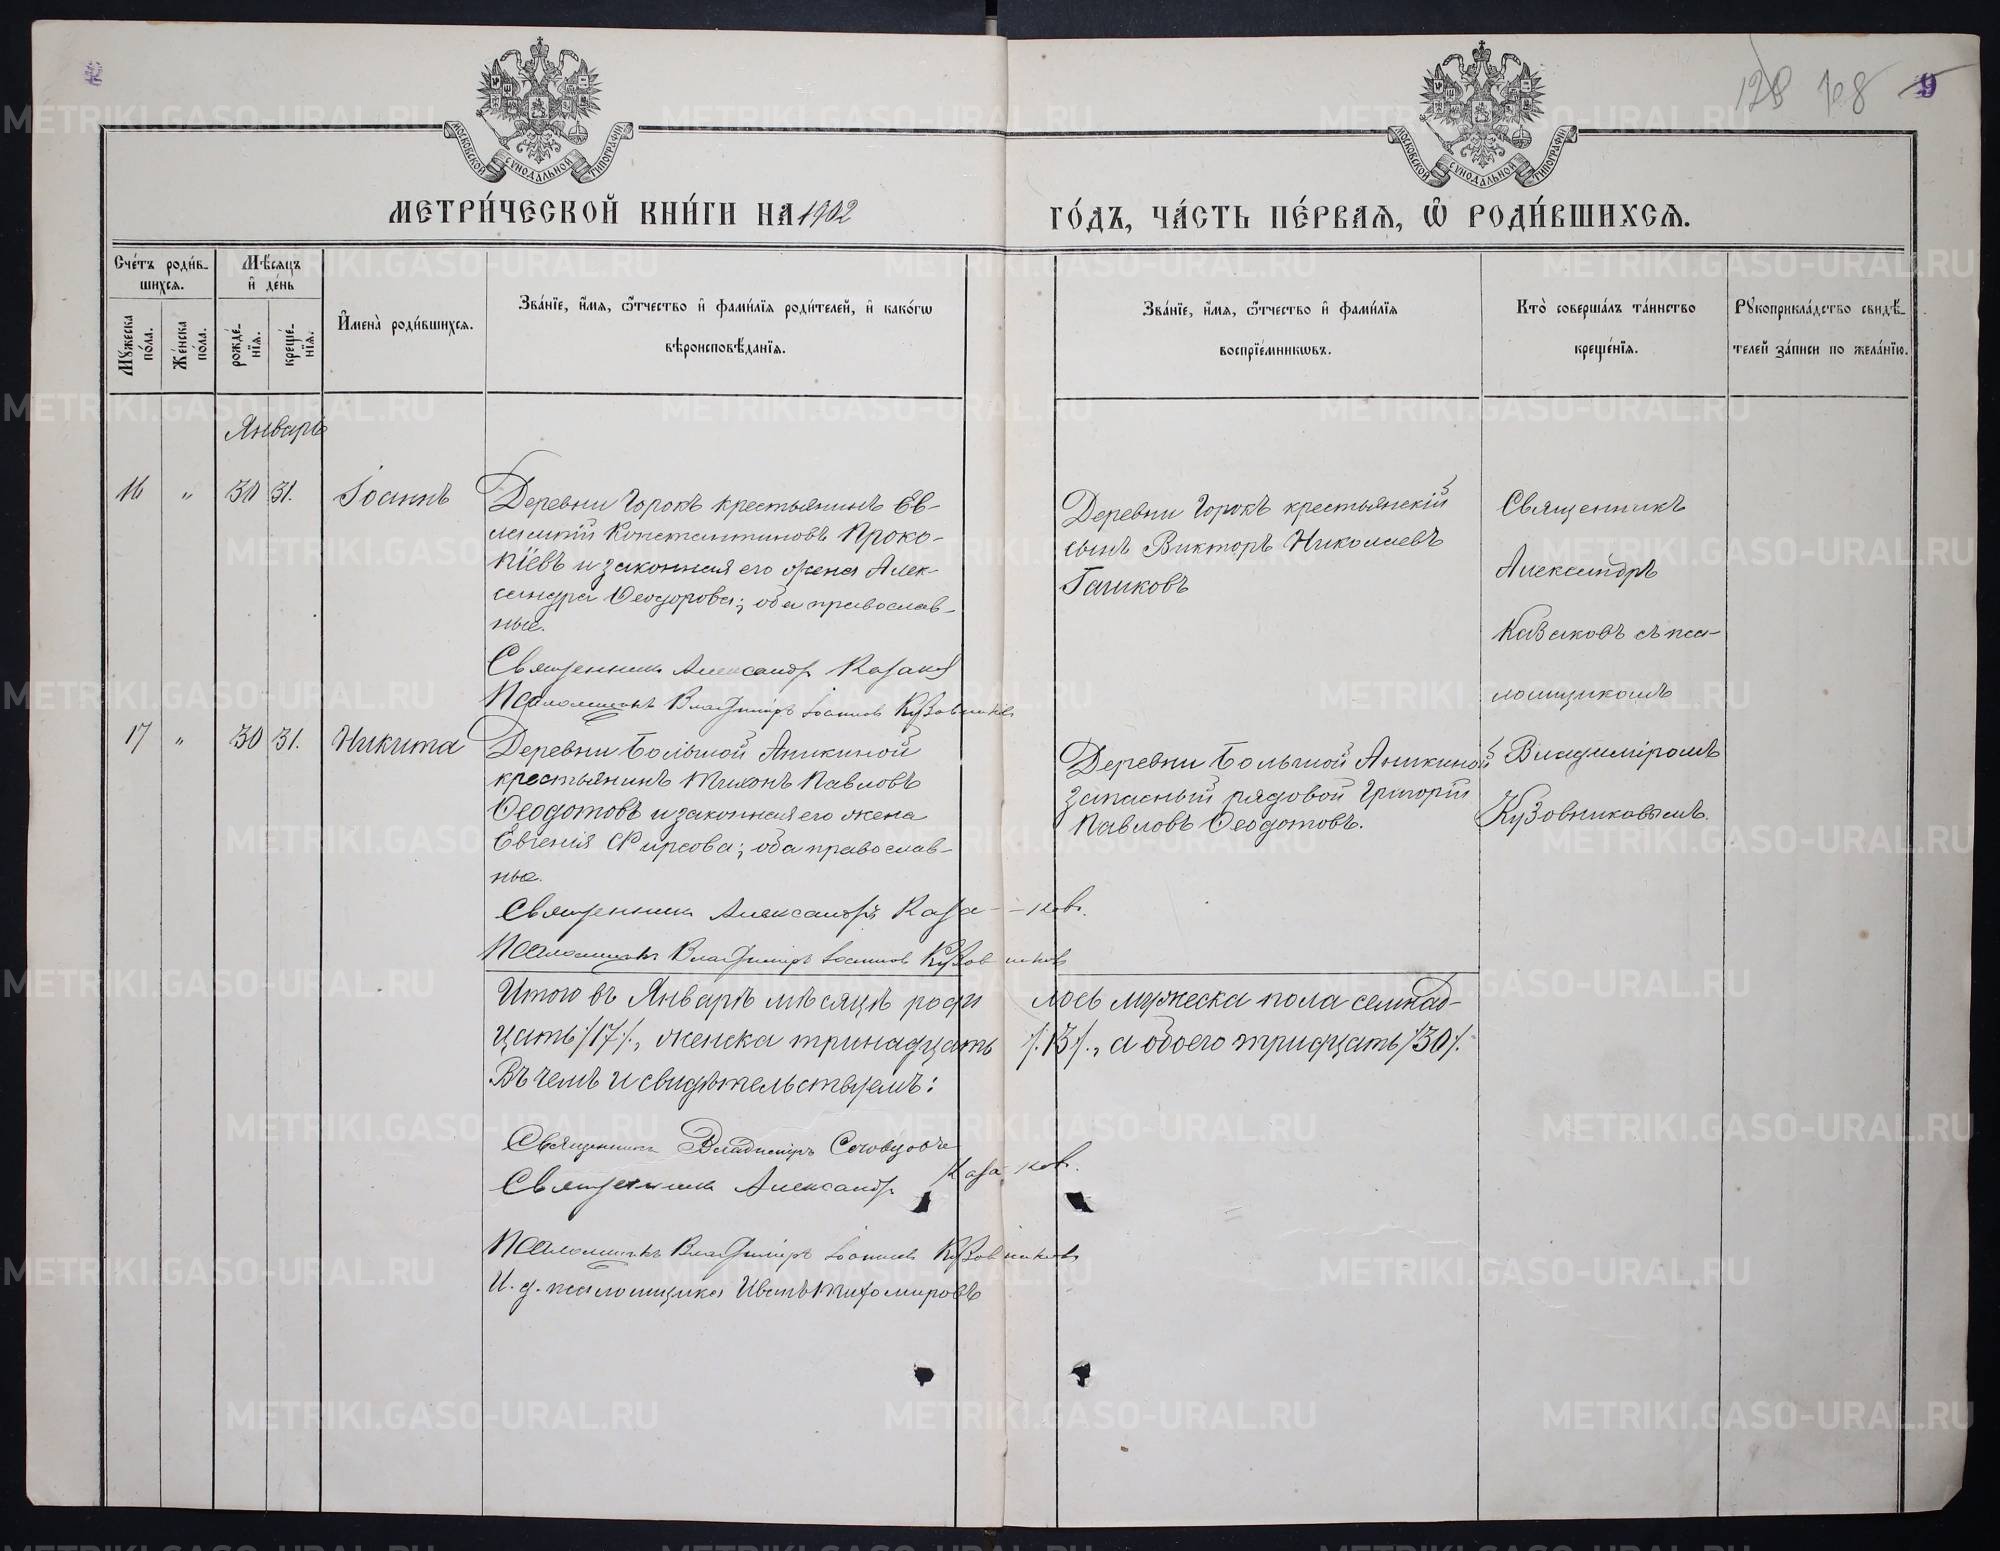 128 128 9
МОСКОВСКОЙ СѴНОДАЛЬНОЙ ТИПОГРАФІИ
МОСКОВСКОЙ СѴНОДАЛЬНОЙ ТИПОГРАФІИ
МЕТРИ́ЧЕСКОЙ КНИ́ГИ НА 1902
ГО́ДЪ, ЧА́СТЬ ПЕ́РВАѦ, Ѡ҆ РОДИ́ВШИХСѦ.
Сче́тъ роди́в-
шихсѧ.
Мꙋжеска по́ла.
Же́нска по́ла.
Мѣ́сѧцъ
и҆ де́нь
рожде́-
нїѧ.
креще́-
нїѧ.
И҆мена̀ роди́вшихсѧ.
Зва́нїе, и҆́мѧ, ѻ҆́тчество и҆ фами́лїѧ роди́телей, и҆ како́гѡ
вѣроисповѣ́данїѧ.
Зва́нїе, и҆́мѧ, ѻ҆́тчество и҆ фами́лїѧ
воспрїе́мникѡвъ.
Кто̀ соверша́лъ та́инство
креще́нїѧ.
Рꙋкоприкла́дство свидѣ́-
телей за́писи по жела́нїю.
Январь
16 " 30 31. Іоаннъ
Деревни Горокъ крестьянинъ Ев-
лампій Константиновъ Проко-
піевъ и законная его жена Алек-
сандра Ѳеодорова; оба православ-
ные.
Священникъ Александръ Казаковъ
Псаломщикъ Владиміръ Іоанновъ Кузовниковъ
Деревни Горокъ крестьянскій
сынъ Викторъ Николаевъ
Гашковъ
Священникъ
Александръ
Казаковъ съ пса-
ломщикомъ
Владиміромъ
Кузовниковымъ.
17 " 30 31. Никита
Деревни Большой Аникиной
крестьянинъ Тихонъ Павловъ
Ѳеодотовъ и законная его жена
Евгенія Фирсова; оба православ-
ные.
Священникъ Александръ Каза--ковъ.
Псаломщикъ Владиміръ Іоанновъ Кузовниковъ
Деревни Большой Аникиной
запасный рядовой Григорій
Павловъ Ѳеодотовъ.
Итого въ Январѣ мѣсяцѣ роди лось мужеска пола семнад-
цать /17/., женска тринадцать /.13/., а обоего тридцать /30/.
Въ чемъ и свидѣтельствуемъ:
Священникъ Владиміръ Словцовъ
Священникъ Александръ Казаковъ.
Псаломщикъ Владиміръ Іоанновъ Кузовниковъ
И. д. псаломщика Иванъ Тихомировъ
METRIKI.GASO-URAL.RU